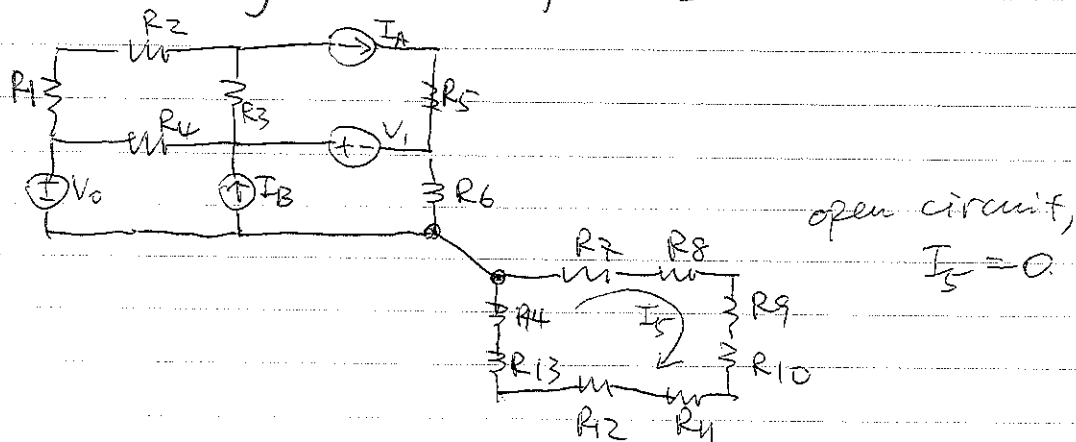 R2
I_A
R1
R3
R5
R4
+ -
V_1
V_0
I_B
R6
open circuit,
I_5 = 0
R7
R8
R14
I_5
R9
R13
R10
R12
R11